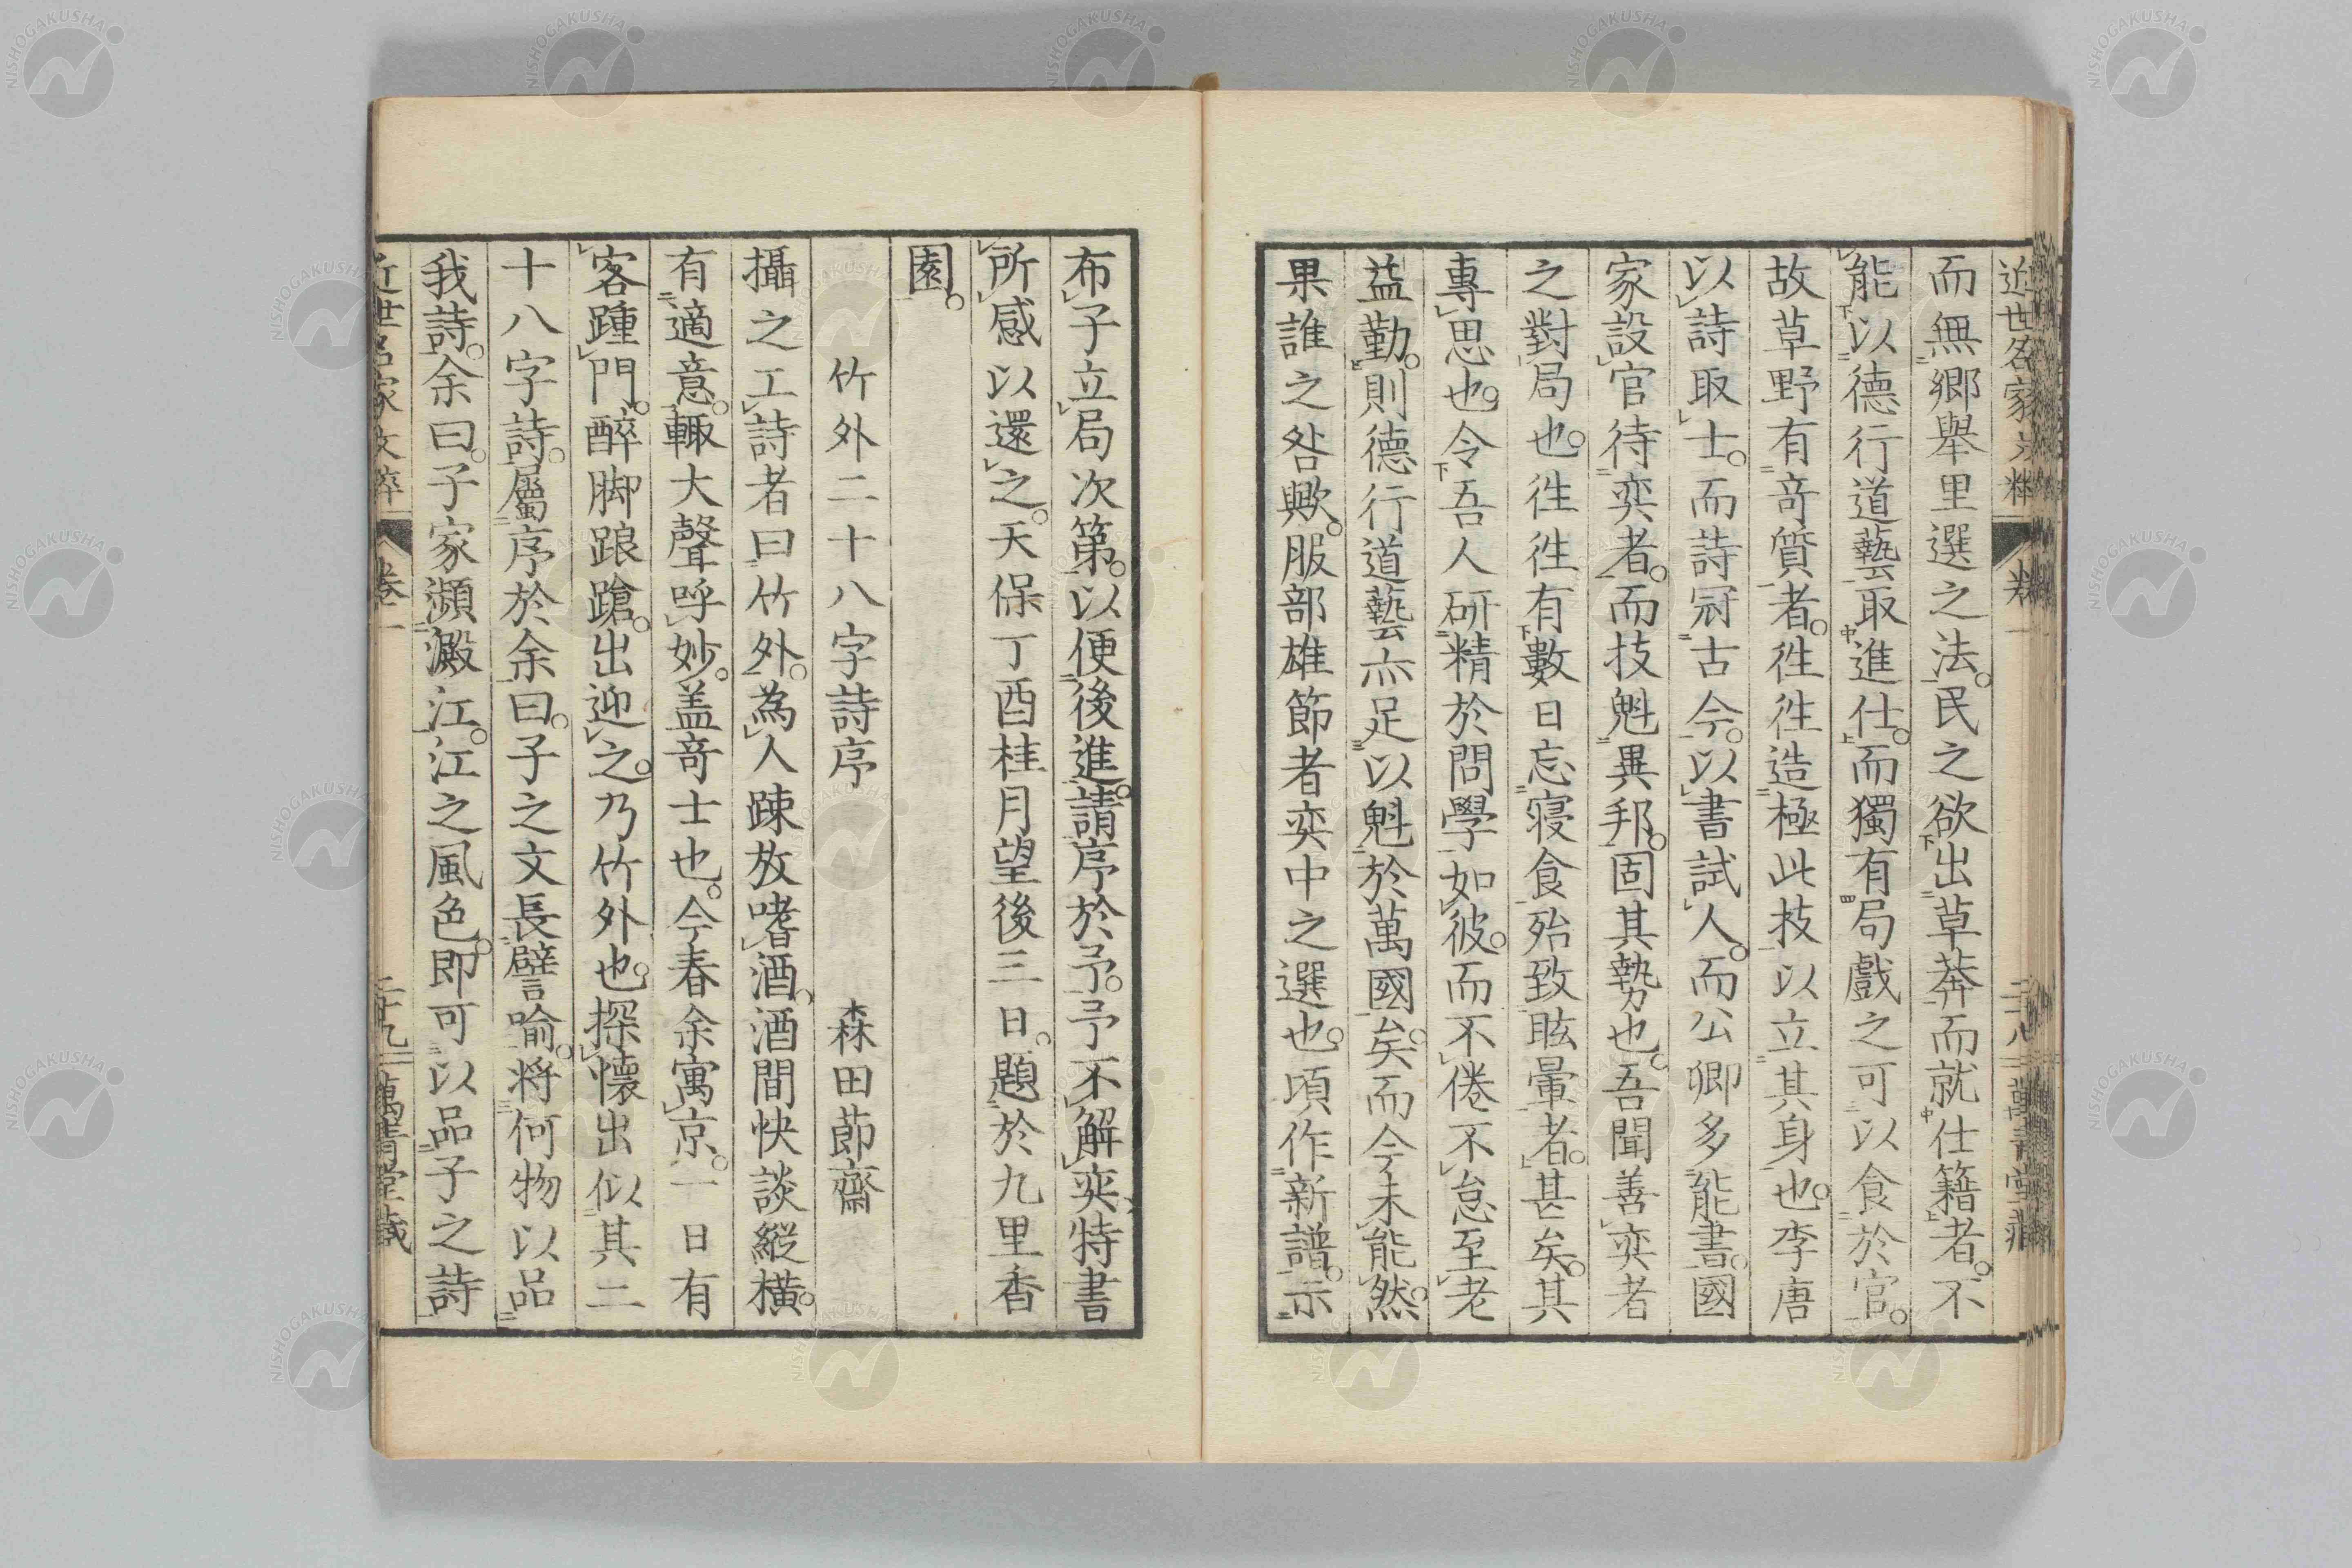 近世名家文粹 卷一 二十八 萬青堂藏
而無鄉舉里選之法。民之欲出草莽而就仕籍者。不
能以德行道藝取進仕。而獨有局戲之可以食於官。
故草野有奇質者。徃徃造極此技以立其身也。李唐
以詩取士。而詩冠古今。以書試人。而公卿多能書。國
家設官待奕者。而技魁異邦。固其勢也。吾聞善奕者
之對局也。徃徃有數日忘寢食殆致眩暈者。甚矣。其
專思也。令吾人研精於問學如彼。而不倦不怠至老
益勤。則德行道藝亦足以魁於萬國矣。而今未能然。
果誰之咎歟。服部雄節者奕中之選也。頃作新譜。示
布子立局次第。以便後進。請序於予。予不解奕特書
所感以還之。天保丁酉桂月望後三日。題於九里香
園。
竹外二十八字詩序 森田莭齋
攝之工詩者曰竹外。為人踈放嗜酒。酒間快談縱橫。
有適意。輙大聲呼妙。盖奇士也。今春余寓京。一日有
客踵門。醉脚踉蹌。出迎之。乃竹外也。探懷出似其二
十八字詩。屬序於余。曰。子之文長譬喻。將何物以品
我詩。余曰。子家瀕澱江。江之風色。即可以品子之詩
近世名家文粹 卷一 二十九 萬青堂藏